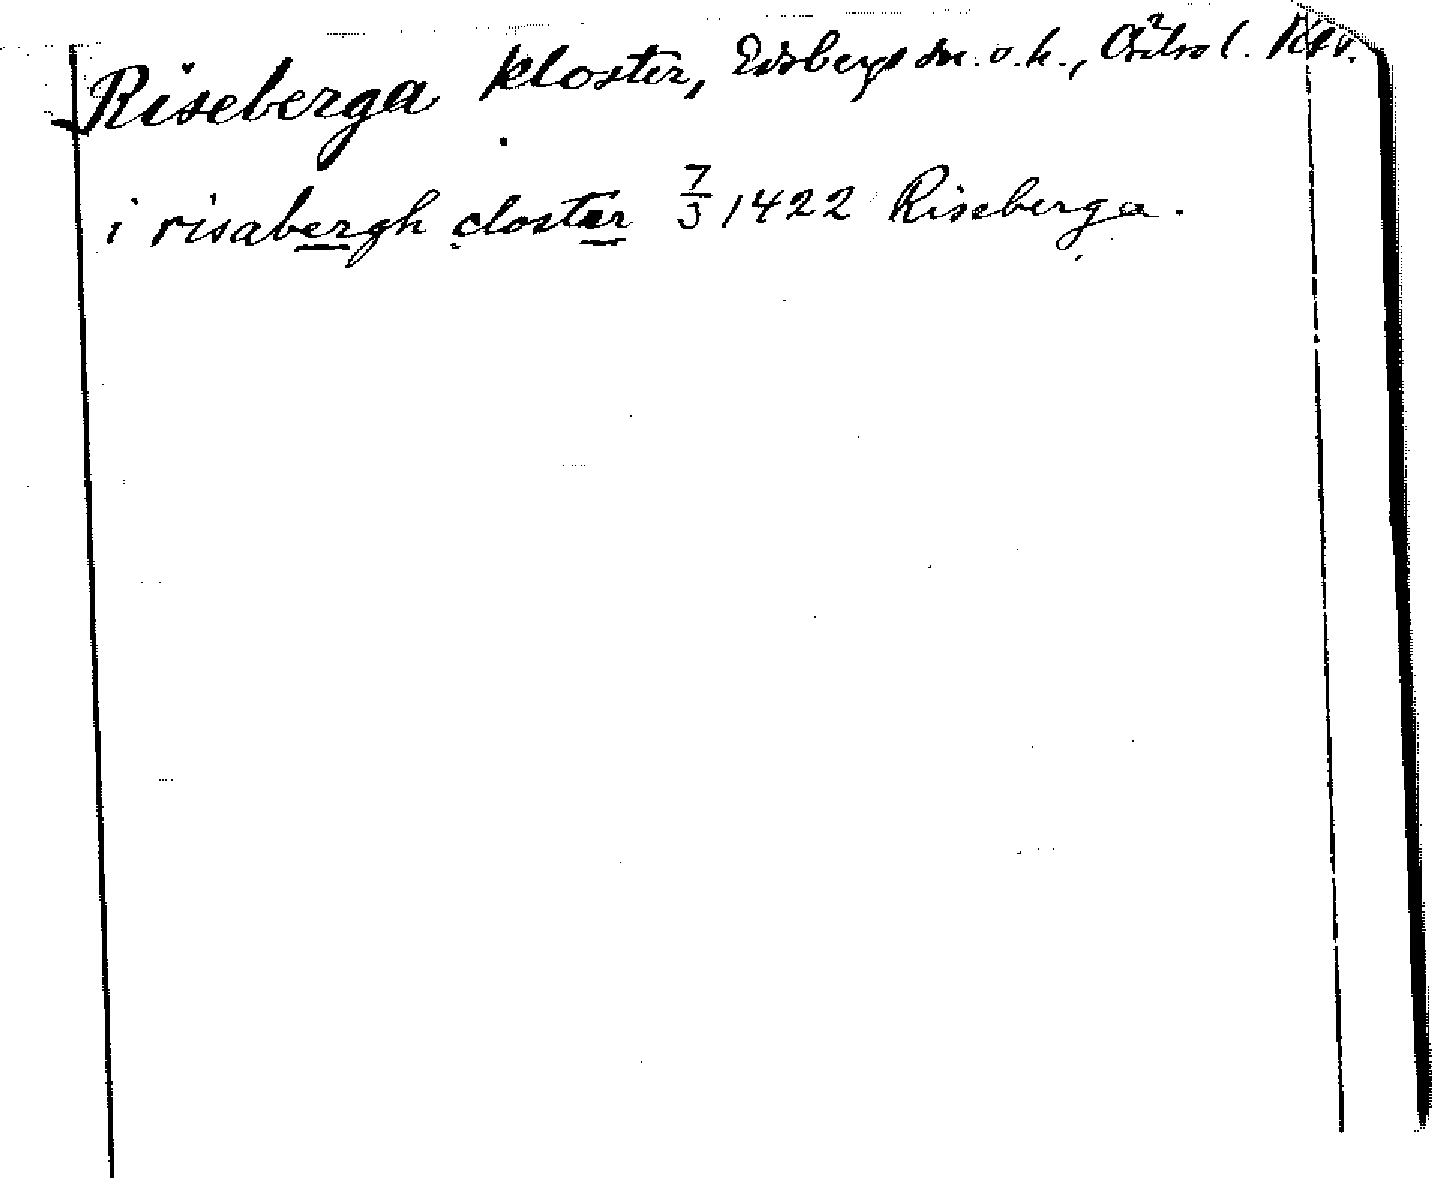 Riseberga kloster, Edsbergs sn. o. h., Örebro l.
i risabergh closter 7/3 1422 Riseberga.